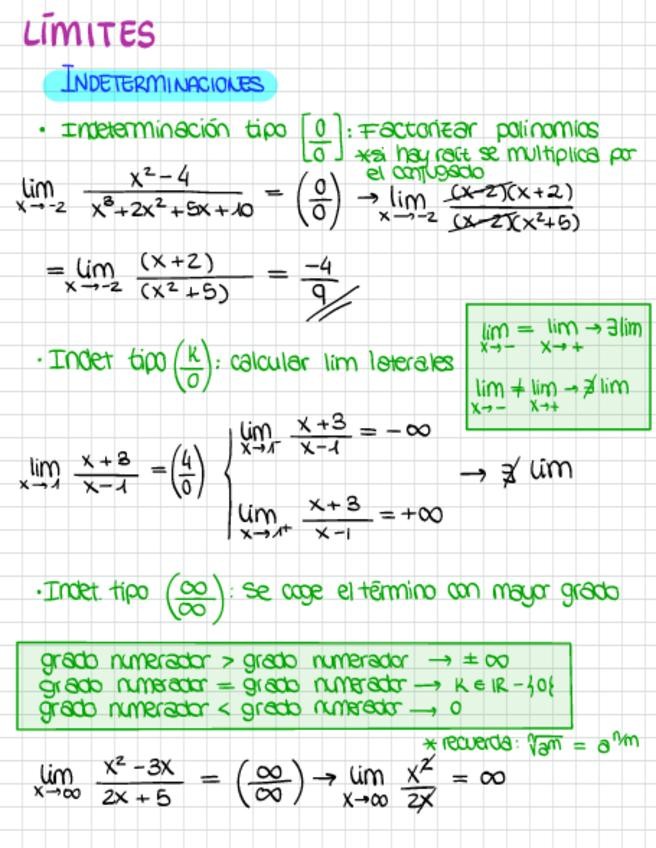 LÍMITES
INDETERMINACIONES
• Indeterminación tipo [0/0]: Factorizar polinomios
*si hay raíz se multiplica por
el conjugado
lim x→-2 (x²-4)/(x³+2x²+5x+10) = (0/0) → lim x→-2 (x-2)(x+2)/(x-2)(x²+5)
= lim x→-2 (x+2)/(x²+5) = -4/9
lim x→- = lim x→+ → ∃ lim
lim x→- ≠ lim x→+ → ∄ lim
· Indet tipo (K/0): calcular lim laterales
lim x→1 (x+3)/(x-1) = (4/0) { lim x→1⁻ (x+3)/(x-1) = -∞
lim x→1⁺ (x+3)/(x-1) = +∞
→ ∄ lim
· Indet. tipo (∞/∞): se coge el término con mayor grado
grado numerador > grado numerador → ±∞
grado numerador = grado numerador → K ∈ IR - {0{
grado numerador < grado numerador → 0
* recuerda: ⁿ√am = a^n/m
lim x→∞ (x²-3x)/(2x+5) = (∞/∞) → lim x→∞ x²/2x = ∞